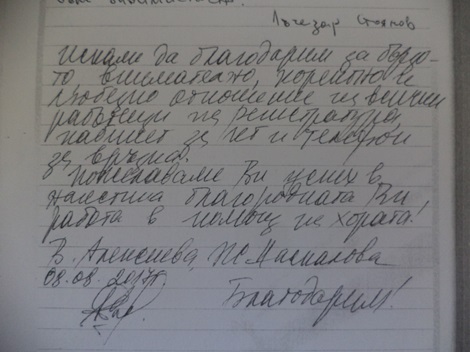 Лъчезар Стоянов
Искаме да благодарим за бързо-
то, внимателно, коректно и
любезно отношение на всички
работещи на регистратура,
кабинет за и телефон
за връзка.
Пожелаваме Ви успех в
наистина благородната Ви
работа в помощ на хората!
В. Алексиева,
08.08.
Благодарим!